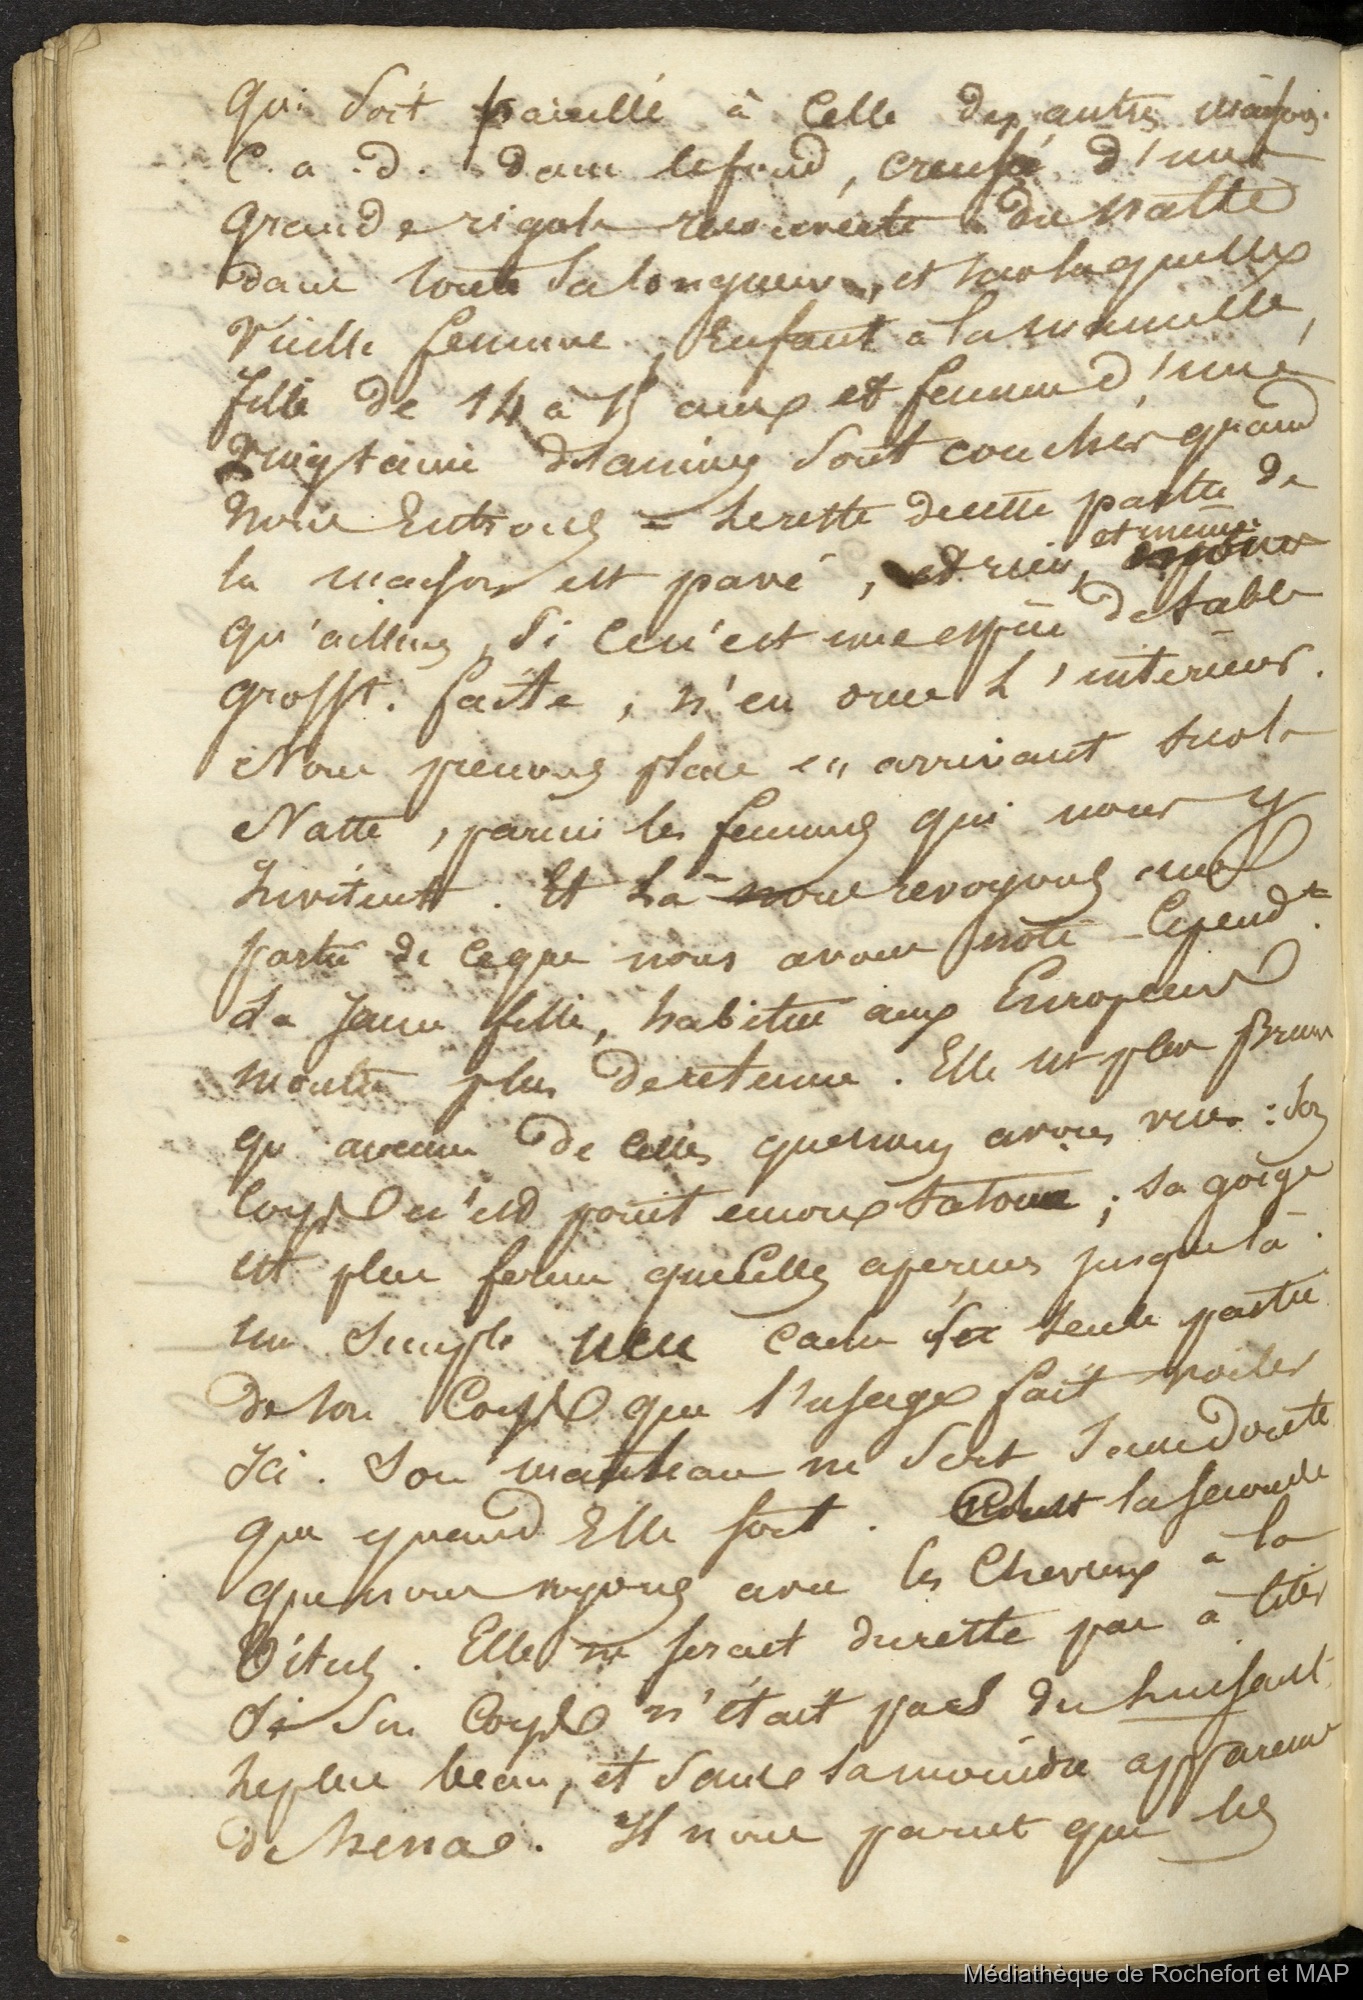 qui soit pareille à celle des autres maisons.
C. a. d. dans le fond, creusé d'une
grande rigole recouverte de natte
dans toute sa longueur, et sur laquelle
vieille femme, Enfant à la mamelle,
fille de 14 à 15 ans et femme d'une
vingtaine d'années sont couchés quand
nous Entrons = le reste de cette partie de
la maison est pavé, et rien, et même
qu'ailleurs, si ce n'est une espèce de table
grosst. faite, n'en orne l'interieur.
Nous prenons place en arrivant sur la
Natte, parmi les femmes qui nous y
Invitent. Et là nous revoyons une
partie de ce que nous avons noté - Cependt.
La Jeune fille, habituée aux Européens
montre plus de retenue. Elle est plus Brune
qu'aucune de celles que nous avions vues : son
Corps n'est point encore tatoué ; sa gorge
est plus ferme que celles aperçues jusque là.
un simple cache seule partie
de son Corps que l'usage fait voiler
Ici. Son manteau ne sert sans doute
que quand Elle sort. C'est la seconde
que nous voyons avec les Cheveux à la
Titus. Elle ne serait du reste pas à citer
si son Corps n'était pas du luisant
le plus beau, et sans la moindre apparence
de . Il nous parut que les